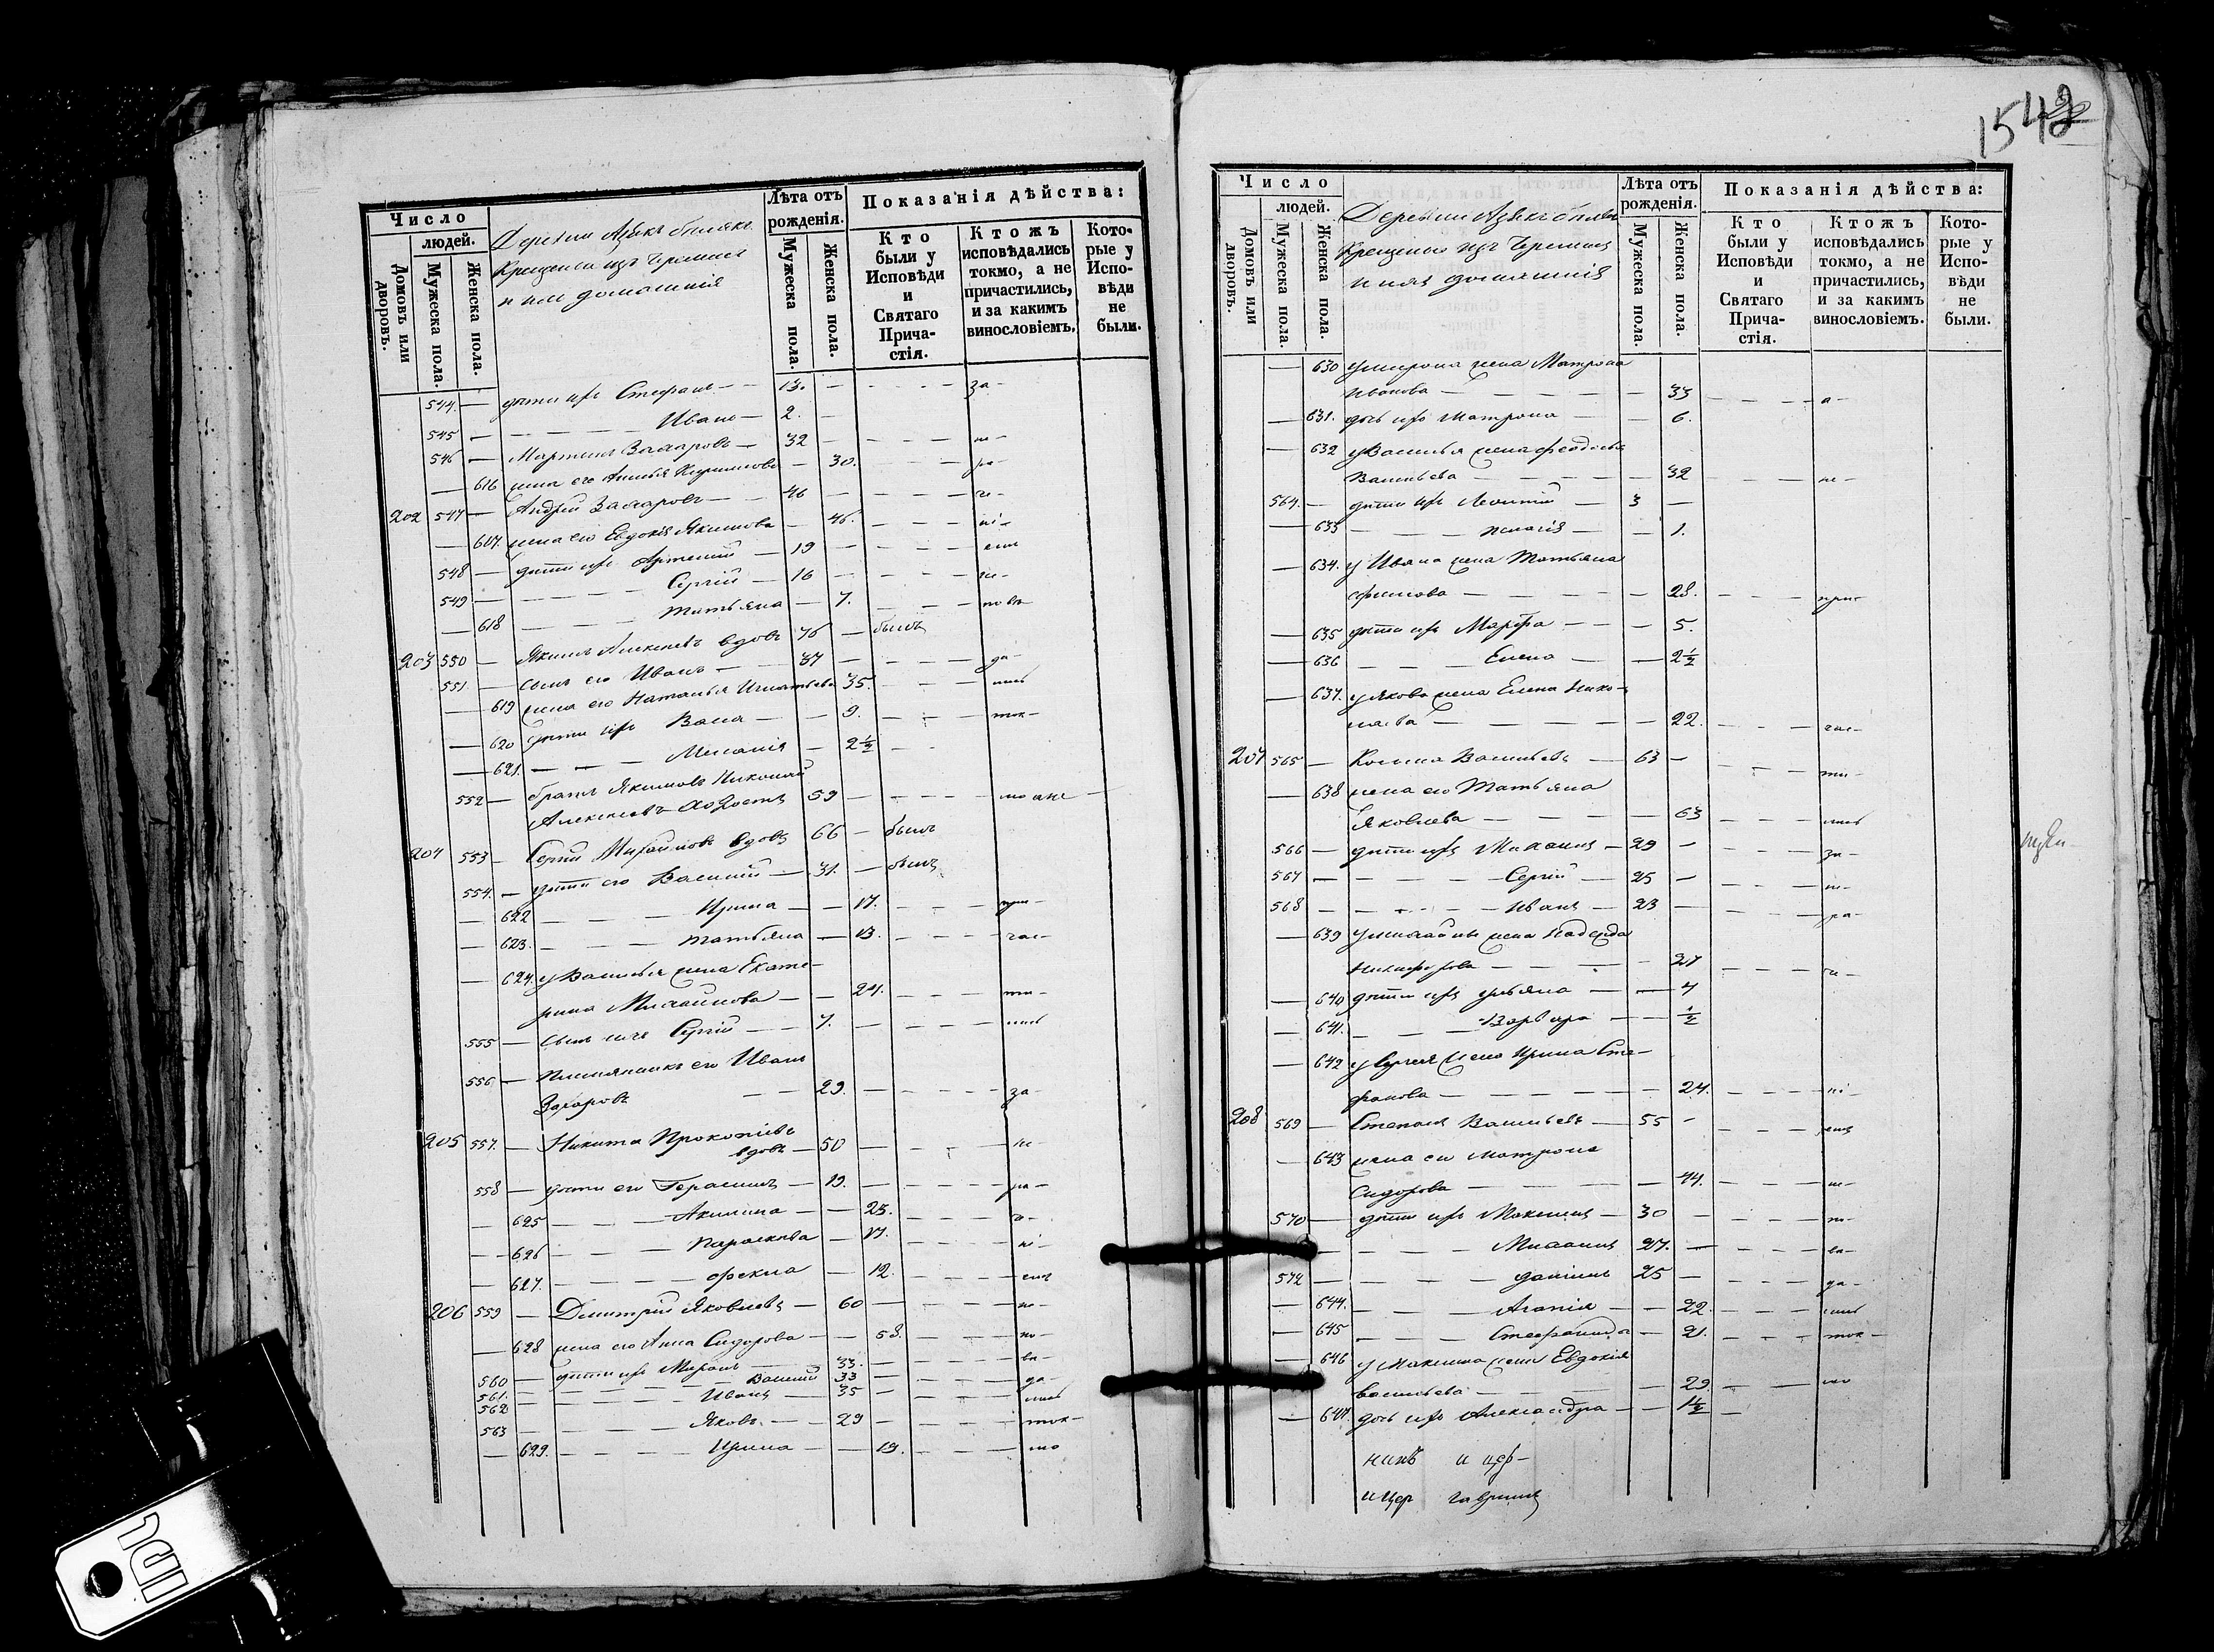 1542
Число
людей.
Домовъ или дворовъ.
Мужеска пола.
Женска пола.
Деревни
Крещеныя изъ Черемисъ
и ихъ домашнія
Лѣта отъ рожденія.
Мужеска пола.
Женска пола.
Показанія дѣйства:
Кто были у Исповѣди и Святаго Причастія.
Ктожъ исповѣдались токмо, а не причастились, и за какимъ винословіемъ.
Которые у Исповѣди не были.
544. — дѣти ихъ Стефанъ — 13. — за-
545 — Иванъ — 2. —
546 — Мартинъ Захаровъ — 32 — не-
— 616 жена его 30. — ра-
202 547 — Андрей Захаровъ — 46 —
— 617. жена его Евдокія Якимова — 46. — ні-
548 — дѣти ихъ Артемій — 19 — емъ
549 — Сергій — 16 —
— 618 Татьяна — 7. —
203 550 — Якимъ Алексѣевъ вдовъ 76 — былъ
551 — сынъ его Иванъ — 37 — да-
— 619 жена его Наталья Игнатьева 35. — лись
— 620 дѣти ихъ — 9. — ток-
— 621. — Меланія — 2½ —
552 — братъ Якимовъ Николай
Алексѣевъ холостъ 59 — мо а не
204 553 — Сергій Михайловъ вдовъ 66 — былъ
554. — дѣти его Василій — 31. — былъ
— 622 — Ирина — 17. — при-
— 623. — Татьяна — 13. — час-
— 624. у Василья жена Екате-
рина Михайлова — 24. — ти-
555 — сынъ ихъ Сергій — 7. — лись
556 — Племянникъ его Иванъ
Захаровъ — 29. — за-
205 557. — Никита Прокопіевъ
вдовъ — 50 — не-
558 — дѣти его Герасимъ — 19. — ра-
— 625 — Акилина — 23.
— 626 — Параскева — 17. — ні-
— 627. — Фекла — 12. — емъ
206 559 — Дмитрій Яковлевъ — 60 — ис-
— 628 жена его Анна Сидорова — 58. — по-
560 — дѣти ихъ Миронъ 33. — вѣ-
561. — Василій 33 — да-
562 — Иванъ — 35 — лись
563 — Яковъ — 29 — ток-
— 629. — Ирина — 19. — мо
Число
людей.
Домовъ или дворовъ.
Мужеска пола.
Женска пола.
Деревни
Крещеныя изъ Черемисъ
и ихъ домашнія
Лѣта отъ рожденія.
Мужеска пола.
Женска пола.
Показанія дѣйства:
Кто были у Исповѣди и Святаго Причастія.
Ктожъ исповѣдались токмо, а не причастились, и за какимъ винословіемъ.
Которые у Исповѣди не были.
— 630 у Мирона жена Матрона
Иванова — 33 — а-
— 631. дочь ихъ Матрона — 6.
— 632 у Василья жена Феодосья
Васильева — 32 — не-
564. — дѣти ихъ Леонтій — 3 —
— 633 — Пелагія — 1.
— 634. у Ивана жена Татьяна
— 28. — при-
— 635 дѣти ихъ Марфа — 5.
— 636 — Елена — 2½
— 637. у Якова жена Елена Нико-
лаева — 22. — час-
207 565 — Косьма Васильевъ — 63 — ти-
— 638 жена его Татьяна
Яковлева — 63 — лись
566 — дѣти ихъ Михаилъ — 29 — за-
567 — Сергій — 25 — не-
568 — Иванъ — 23 — ра-
— 639 у Михайлы жена Надежда
Никифорова — 27
— 640 дѣти ихъ Ульяна — 7
— 641. — Варвара — ½
— 642 у Сергея жена Ирина Сте-
фанова — 24. — ні-
208 569 — Степанъ Васильевъ — 55 — емъ
— 643 жена его Матрона
Сидорова — 44. — ис-
570 — дѣти ихъ Максимъ — 30 — по-
— Михаилъ 27. — вѣ-
572 — Даніилъ 25 — да-
— 644. — Агапія — 22. — лись
— 645 — Стефанида — 21. — ток-
— 646 у Максима жена Евдокія
Васильева — 29. — мо
— 647. дочь ихъ Александра — 1½